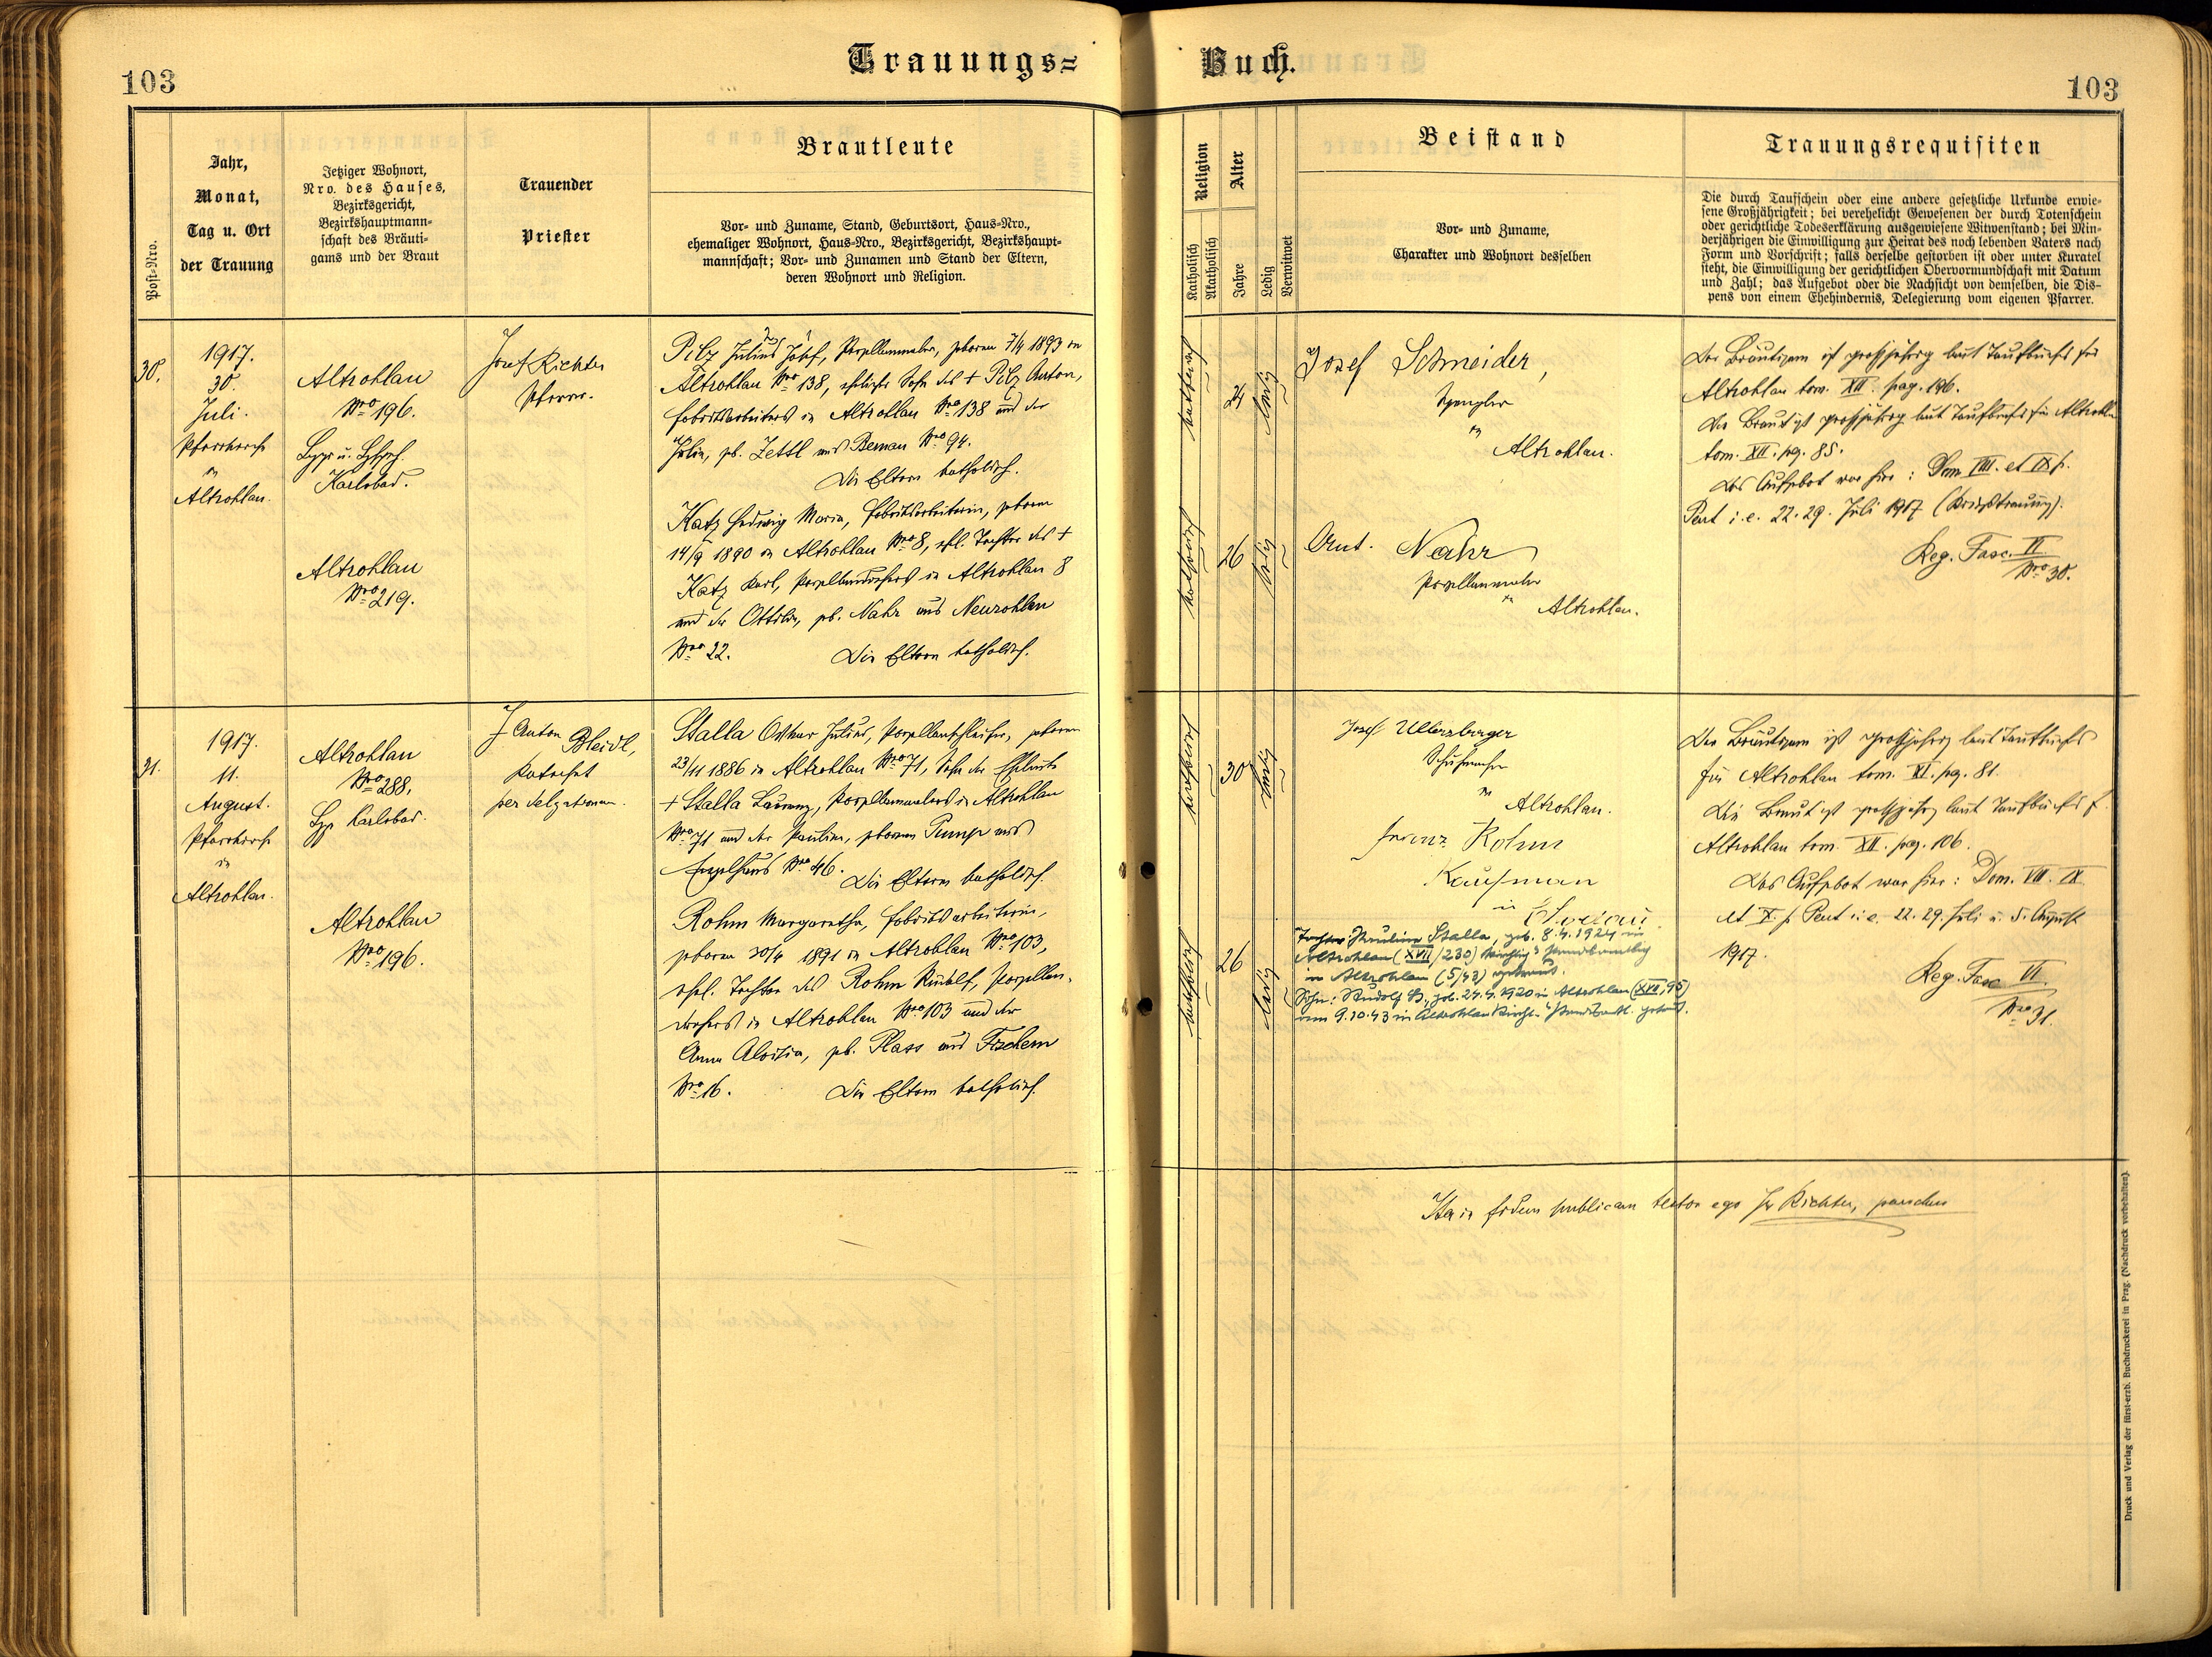 Trauungs=
Buch.
103
103
Post-Nro.
Jahr,
Monat,
Tag u. Ort
der Trauung
Jetziger Wohnort,
Nro. des Hauses,
Bezirksgericht,
Bezirkshauptmann-
schaft des Bräuti-
gams und der Braut
Trauender
Priester
Brautleute
Vor- und Zuname, Stand, Geburtsort, Haus-Nro.,
ehemaliger Wohnort, Haus-Nro., Bezirksgericht, Bezirkshaupt-
mannschaft; Vor- und Zunamen und Stand der Eltern,
deren Wohnort und Religion.
Religion
Katholisch
Akatholisch
Alter
Jahre
Ledig
Verwitwet
Beistand
Vor- und Zuname,
Charakter und Wohnort desselben
Trauungsrequisiten
Die durch Taufschein oder eine andere gesetzliche Urkunde erwie-
sene Großjährigkeit; bei verehelicht Gewesenen der durch Totenschein
oder gerichtliche Todeserklärung ausgewiesene Witwenstand; bei Min-
derjährigen die Einwilligung zur Heirat des noch lebenden Vaters nach
Form und Vorschrift; falls derselbe gestorben ist oder unter Kuratel
steht, die Einwilligung der gerichtlichen Obervormundschaft mit Datum
und Zahl; das Aufgebot oder die Nachsicht von demselben, die Dis-
pens von einem Ehehindernis, Delegierung vom eigenen Pfarrer.
30.
1917.
30.
Juli.
Pfarrkirche
in
Altrohlau.
Altrohlau
Nro 196.
Karlsbad.
Altrohlau
Nro 219.
Josef Richter
Pfarrer.
Pilz Julius Josef, Porzellanmaler, geboren 7/4 1893 in
Altrohlau Nro 138, ehelicher Sohn des + Pilz Anton,
Fabriksarbeiters in Altrohlau Nro 138 und der
Julie, gb. Zettl aus Bernau Nro 94.
Die Eltern katholisch.
Katz Hedwig Maria, Fabriksarbeiterin, geboren
14/9 1890 in Altrohlau Nro 8, ehl. Tochter des +
Katz Karl, Porzellandrehers in Altrohlau 8
und der Ottilie, gb. Nahr aus Neurohlau
Nro 22. Die Eltern katholisch.
katholisch
24
ledig
katholisch
26
ledig
Josef Schneider,
Spengler
in
Altrohlau.
Ant. Nahr
Porzellanmaler
in
Altrohlau.
Der Bräutigam ist großjährig laut Taufbuchs für
Altrohlau tom. XII. pag. 186.
Die Braut ist großjährig laut Taufbuchs für Altrohlau
tom. XII. pg. 85.
Das Aufgebot war hier: Dom VIII. et IX p.
Pent i. e. 22. 29. Juli 1917 (Kriegstrauung).
Reg. Fasc. VI
Nro 30.
31.
1917.
11.
August.
Pfarrkirche
in
Altrohlau.
Altrohlau
Nro 288,
Karlsbad.
Altrohlau
Nro 196.
J Anton Bleidl,
Katechet
per delegationem.
Stalla Othmar Julius, Porzellanschleifer, geboren
23/11 1886 in Altrohlau Nro 71, Sohn der Eheleute
+ Stalla Laurenz, Porzellanmalers in Altrohlau
Nro 71 und der Pauline, geborenen Pump aus
Engelhaus Nro 46. Die Eltern katholisch.
Rohm Margaretha, Fabriksarbeiterin,
geboren 30/4 1891 in Altrohlau Nro 103,
ehel. Tochter des Rohm Rudolf, Porzellan-
drehers in Altrohlau Nro 103 und der
Anna Aloisia, gb. Plass aus Fischern
Nro 16. Die Eltern katholisch.
katholisch
30
ledig
katholisch
26
ledig
Josef Ullersberger
Schuhmacher
in
Altrohlau.
Franz Rohm
Kaufman
in
Tochter: Pauline Stalla, geb. 8.4.1924 in
Altrohlau (XVII/230) kirchlich standesamtlich
in Altrohlau (5/43) getraut.
Sohn: Rudolf St., geb. 24.4.1920 in Altrohlau (XVII, 95)
am 9.10.43 in Altrohlau kirchl. u. standesamtl. getraut.
Der Bräutigam ist großjährig laut Taufbuchs
für Altrohlau tom. XI. pg. 81.
Die Braut ist großjährig laut Taufbuchs f.
Altrohlau tom. XII. pag. 106.
Das Aufgebot war hier: Dom. VIII. IX
et X. p. Pent i. e. 22. 29. Juli u. 5. August
1917.
Reg. Fasc VI.
Nro 31.
Ita in fidem publicam testor ego Jos Richter, parochus
Druck und Verlag der fürst-erzb. Buchdruckerei in Prag. (Nachdruck vorbehalten).